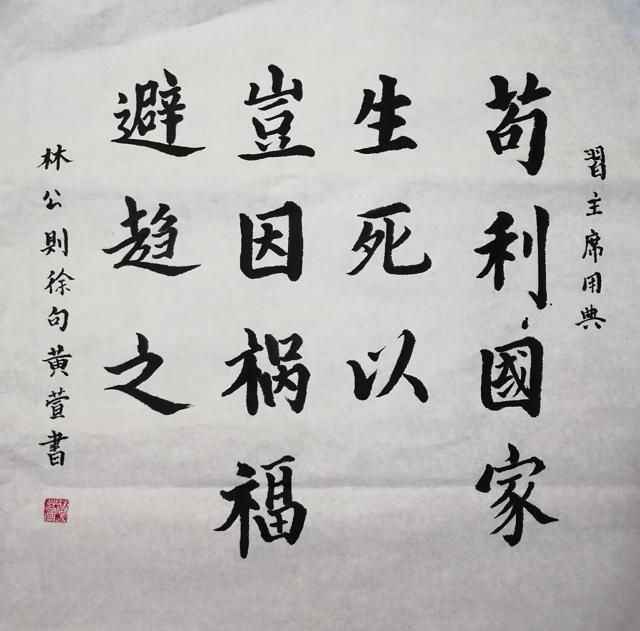 習主席用典
苟利國家
生死以
豈因祸福
避趋之
林公則徐句黄萱書